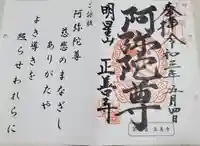 奉拝 令和三年五月四日
阿弥陀尊
明星山 正善寺
ご詠歌
阿弥陀尊
慈悲のまなざし
ありがたや
よき導きを
照らせわれらに